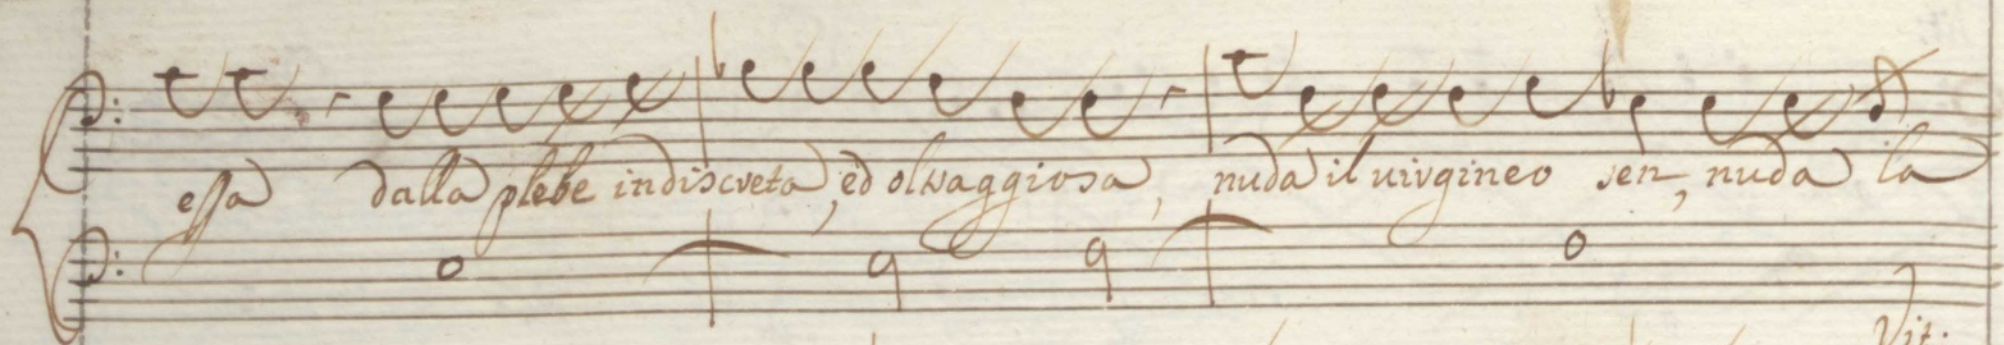 essa dalla plebe indiscreta, ed oltraggiosa, nuda il virgineo sen, nuda la
Vit.